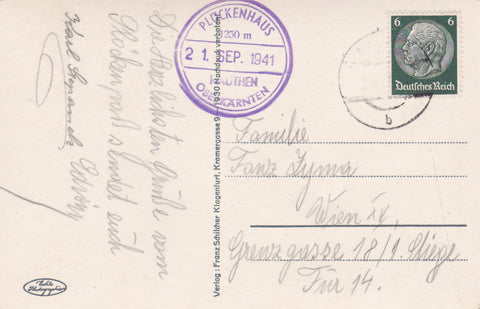 Die herzlichsten Grüße vom
Plöckenpaß sendet euch
Karl
PLÖCKENHAUS
1250 m
21. SEP. 1941
MAUTHEN
OBERKÄRNTEN
Verlag: Franz Schilcher Klagenfurt, Kramergasse 9 — 1930 Nachdruck verboten
6 6
Deutsches Reich
b
Familie
Franz Zyma
Wien
Grenzgasse 18/1. Stiege
Tür 14.
Echte
Photographie